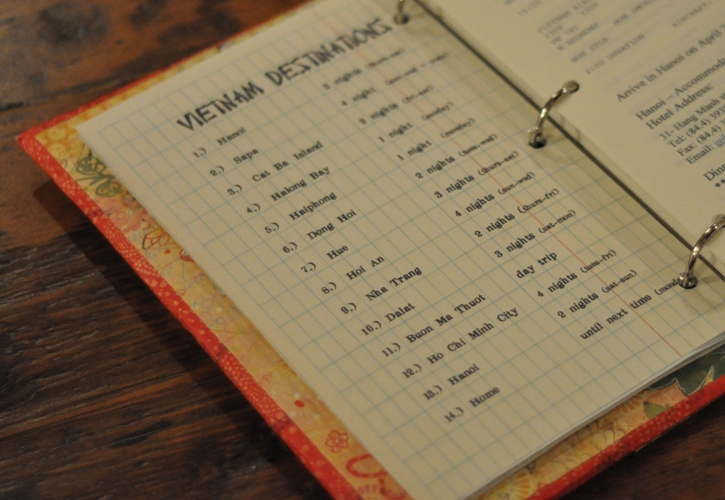 VIETNAM DESTINATIONS
1.) Hanoi 3 nights
2.) Sapa 4 night
3.) Cat Ba Island 2 nights (fri-sat)
4.) Halong Bay 1 night (sunday)
5.) Haiphong 1 night (monday)
6.) Dong Hoi 2 nights (tues-wed)
7.) Hue 3 nights (thurs-sat)
8.) Hoi An 4 nights (sun-wed)
9.) Nha Trang 2 nights (thurs-fri)
10.) Dalat 3 nights (sat-mon)
11.) Buon Ma Thuot day trip
12.) Ho Chi Minh City 4 nights (tues-fri)
13.) Hanoi 2 nights (sat-sun)
14.) Home until next time (mond
AIRCRAFT:
NON STOP
2:00 DURATION
Arrive in Hanoi on April
Hanoi – Accommod
Hotel Address:
31- Hang Manh
Tel: (84.4) 393
Fax: (84.4)
Email:
Din